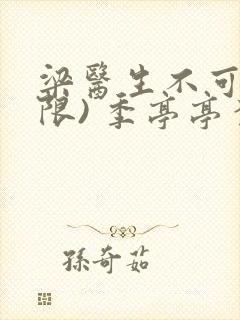 梁醫生不可
限)季亭亭
孫奇茹